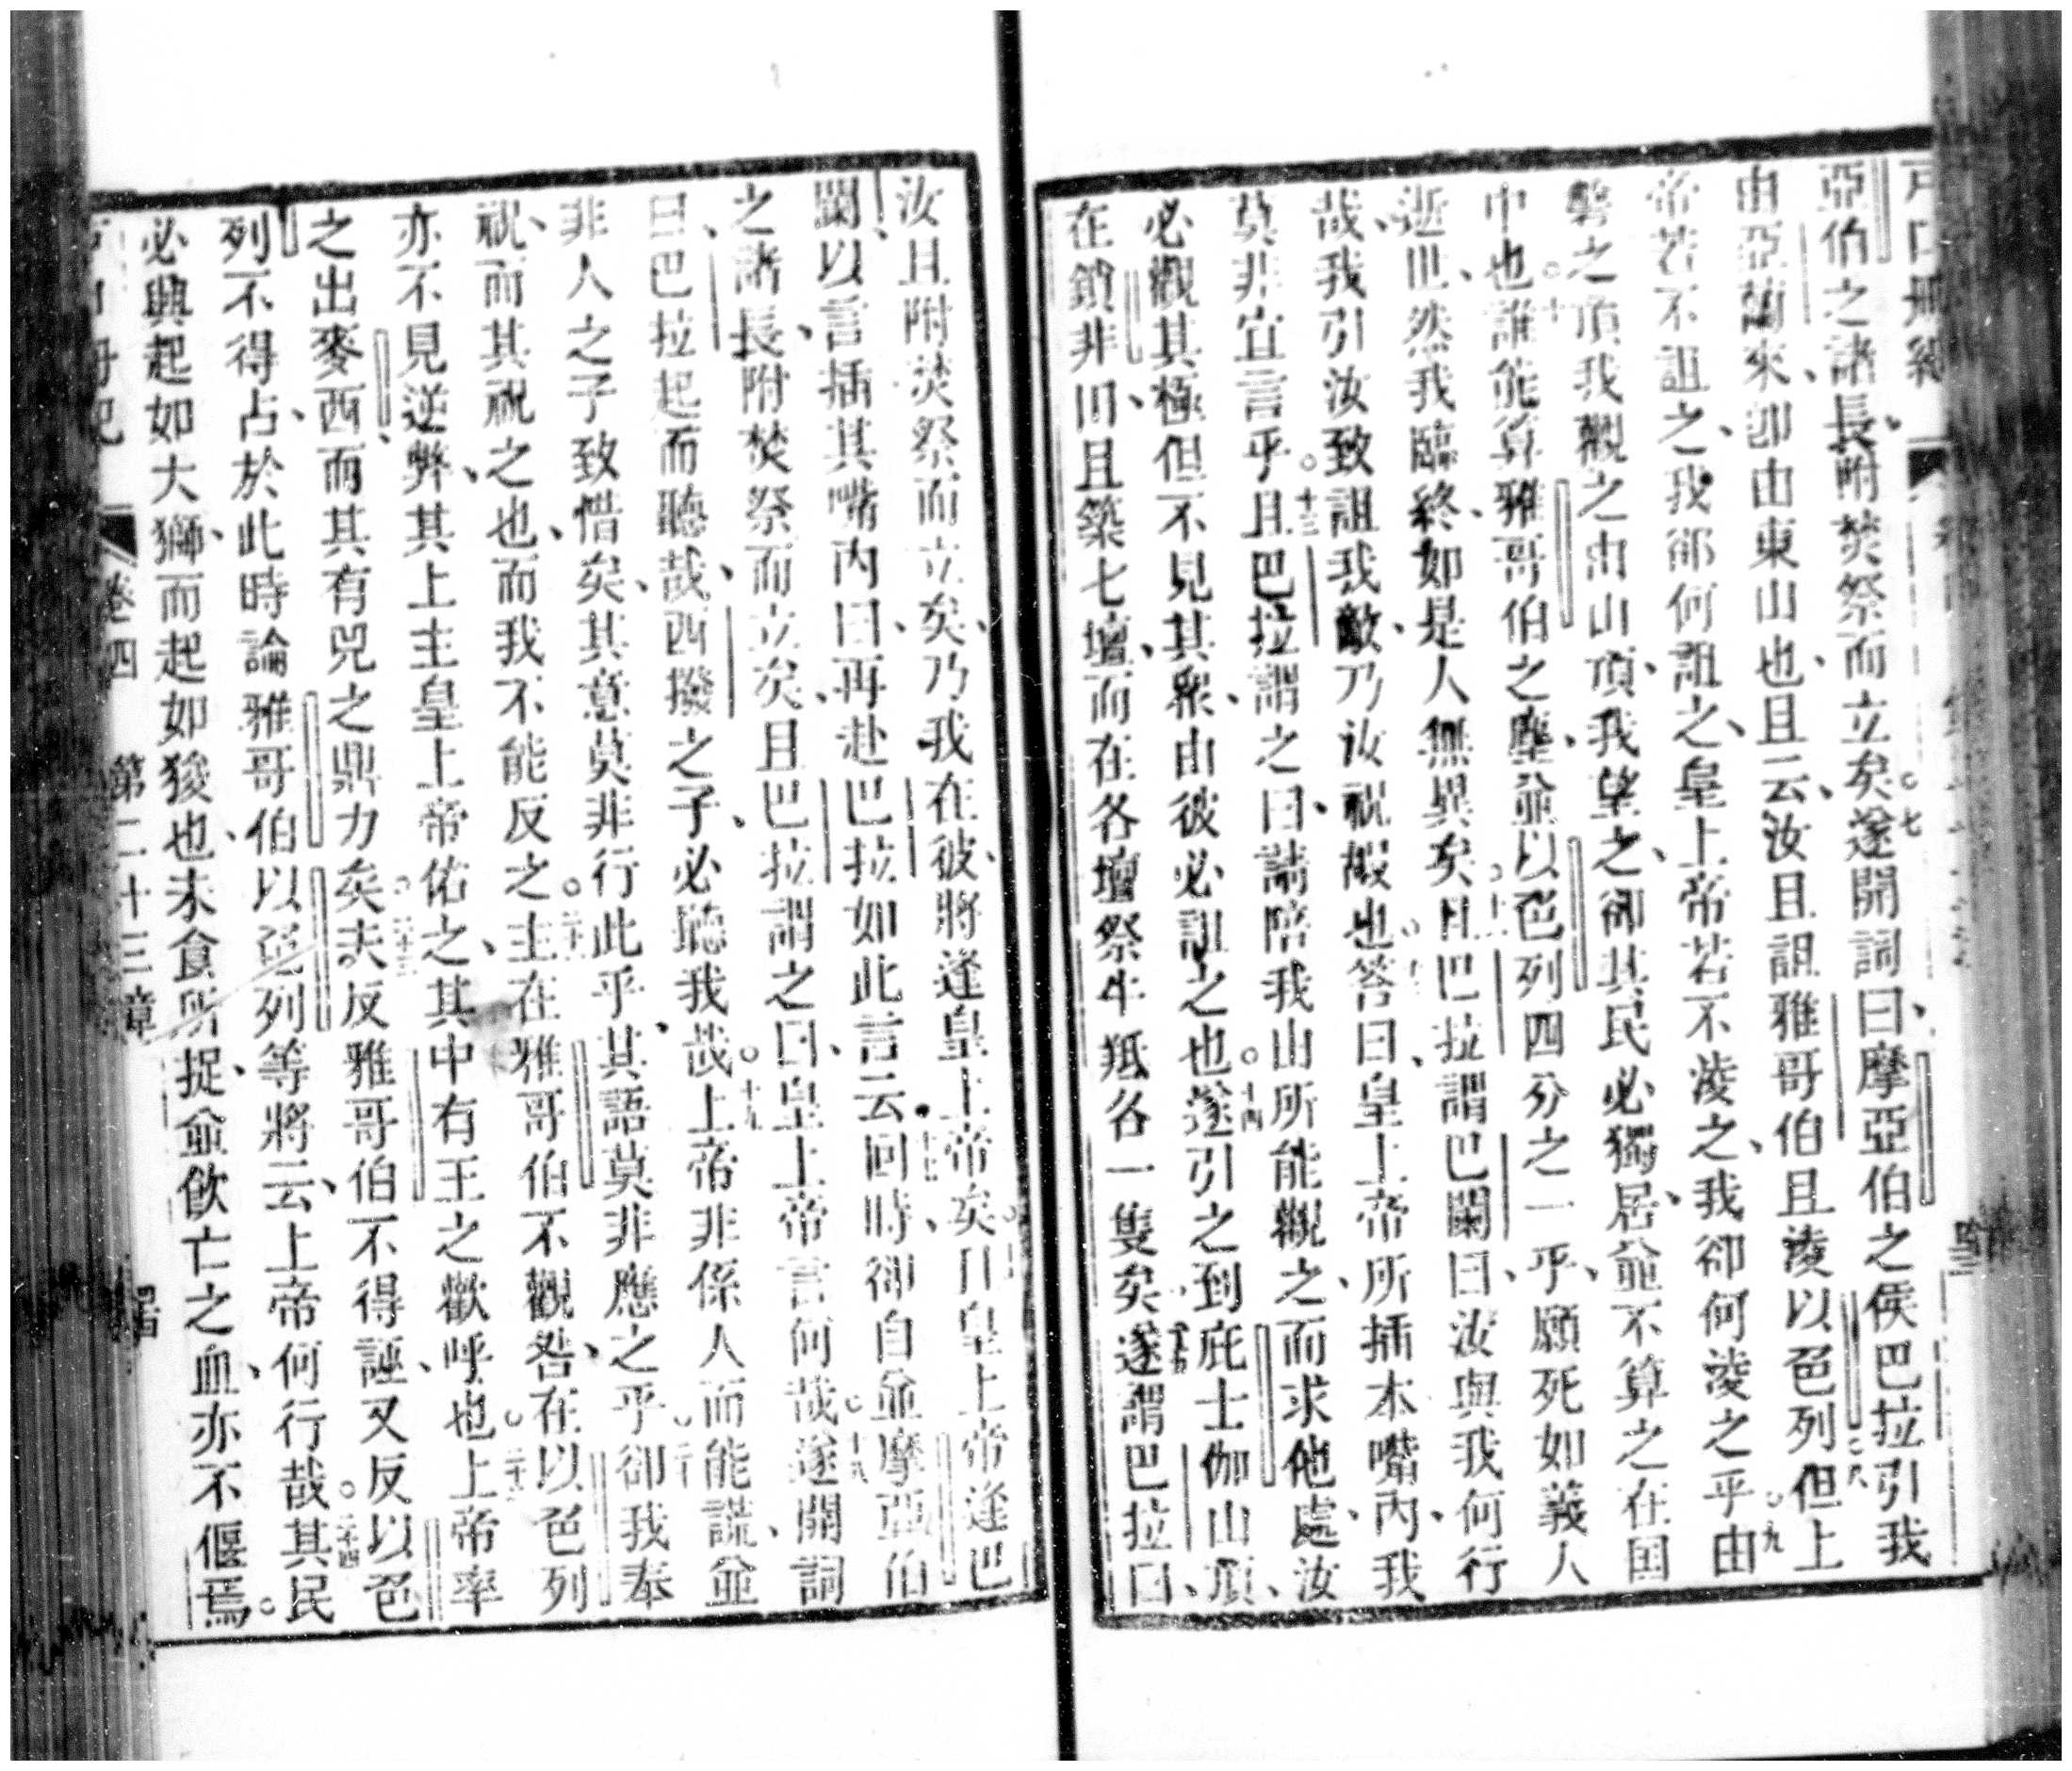 亞伯之諸長、附焚祭而立矣。七遂開詞曰、摩亞伯之侯巴拉引我
由亞蘭來、卽由東山也、且云、汝且詛雅哥伯且淩以色列。八但上
帝若不詛之、我卻何詛之、皇上帝若不淩之、我卻何淩之乎。九由
磐之頂我觀之由山頂、我望之、卻其民必獨居、並不算之在囯
中也。十誰能算雅哥伯之塵、並以色列四分之一乎、願死如義人
逝世、然我臨終、如是人無異矣。十一且巴拉謂巴闌曰、汝與我何行
哉、我引汝致詛我敵、乃汝祝嘏也。答曰、皇上帝所插本嘴內、我
莫非宜言乎。十三且巴拉謂之曰、請陪我山所能觀之、而求他處、汝
必觀其極但不見其衆、由彼必詛之也。十四遂引之到庇士伽山頂、
在鎖非田、且築七壇、而在各壇祭牛羝各一隻矣遂謂巴拉曰、
汝且附焚祭而立矣、乃我在彼、將逢皇上帝矣。皇上帝逢巴
闌、以言插其嘴內曰、再赴巴拉如此言云。十七回時、卻自並摩亞伯
之諸長、附焚祭而立矣、且巴拉謂之曰、皇上帝言何哉。十八遂開詞
曰、巴拉起而聽哉、西撥之子、必聽我哉。十九上帝非係人而能謊、並
非人之子致惜矣、其意莫非行此乎、其語莫非應之乎。二十卻我奉
祝、而其祝之也、而我不能反之。二十一主在雅哥伯不觀咎、在以色列
亦不見逆弊、其上主皇上帝佑之、其中有王之歡呼也。二十二上帝率
之出麥西、而其有兕之鼎力矣。二十三夫反雅哥伯不得誣、又反以色
列不得占、於此時論雅哥伯以色列等將云、上帝何行哉。二十四其民
必興起如大獅、而起如狻也、未食所捉、並飲亡之血、亦不偃焉。
卷四 第二十三章